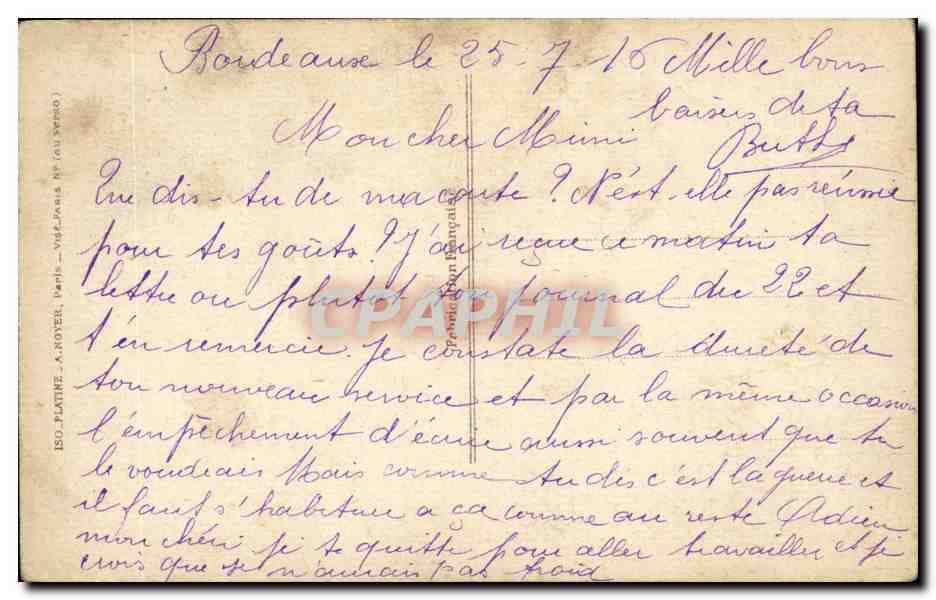 Bordeaux le 25-7-16
Mille bons
baisers de ta
Mon cher Mimi
Que dis-tu de ma carte? N'est-elle pas réussie
pour tes goûts? J'ai reçue ce matin ta
lettre ou plutot ton journal du 22 et
t'en remercie. Je constate la dureté de
ton nouveau service et par la même occasion
l'empêchement d'écrire aussi souvent que tu
le voudrais Mais comme tu dis c'est la guerre et
il faut s'habituer a ça comme au reste Adieu
mon chéri je te quitte pour aller travailler et je
crois que je n'aurais pas froid
Fabrication Française
ISO-PLATINE - A. NOYER, Paris - Visé-Paris No (au verso)
CPAPHIL